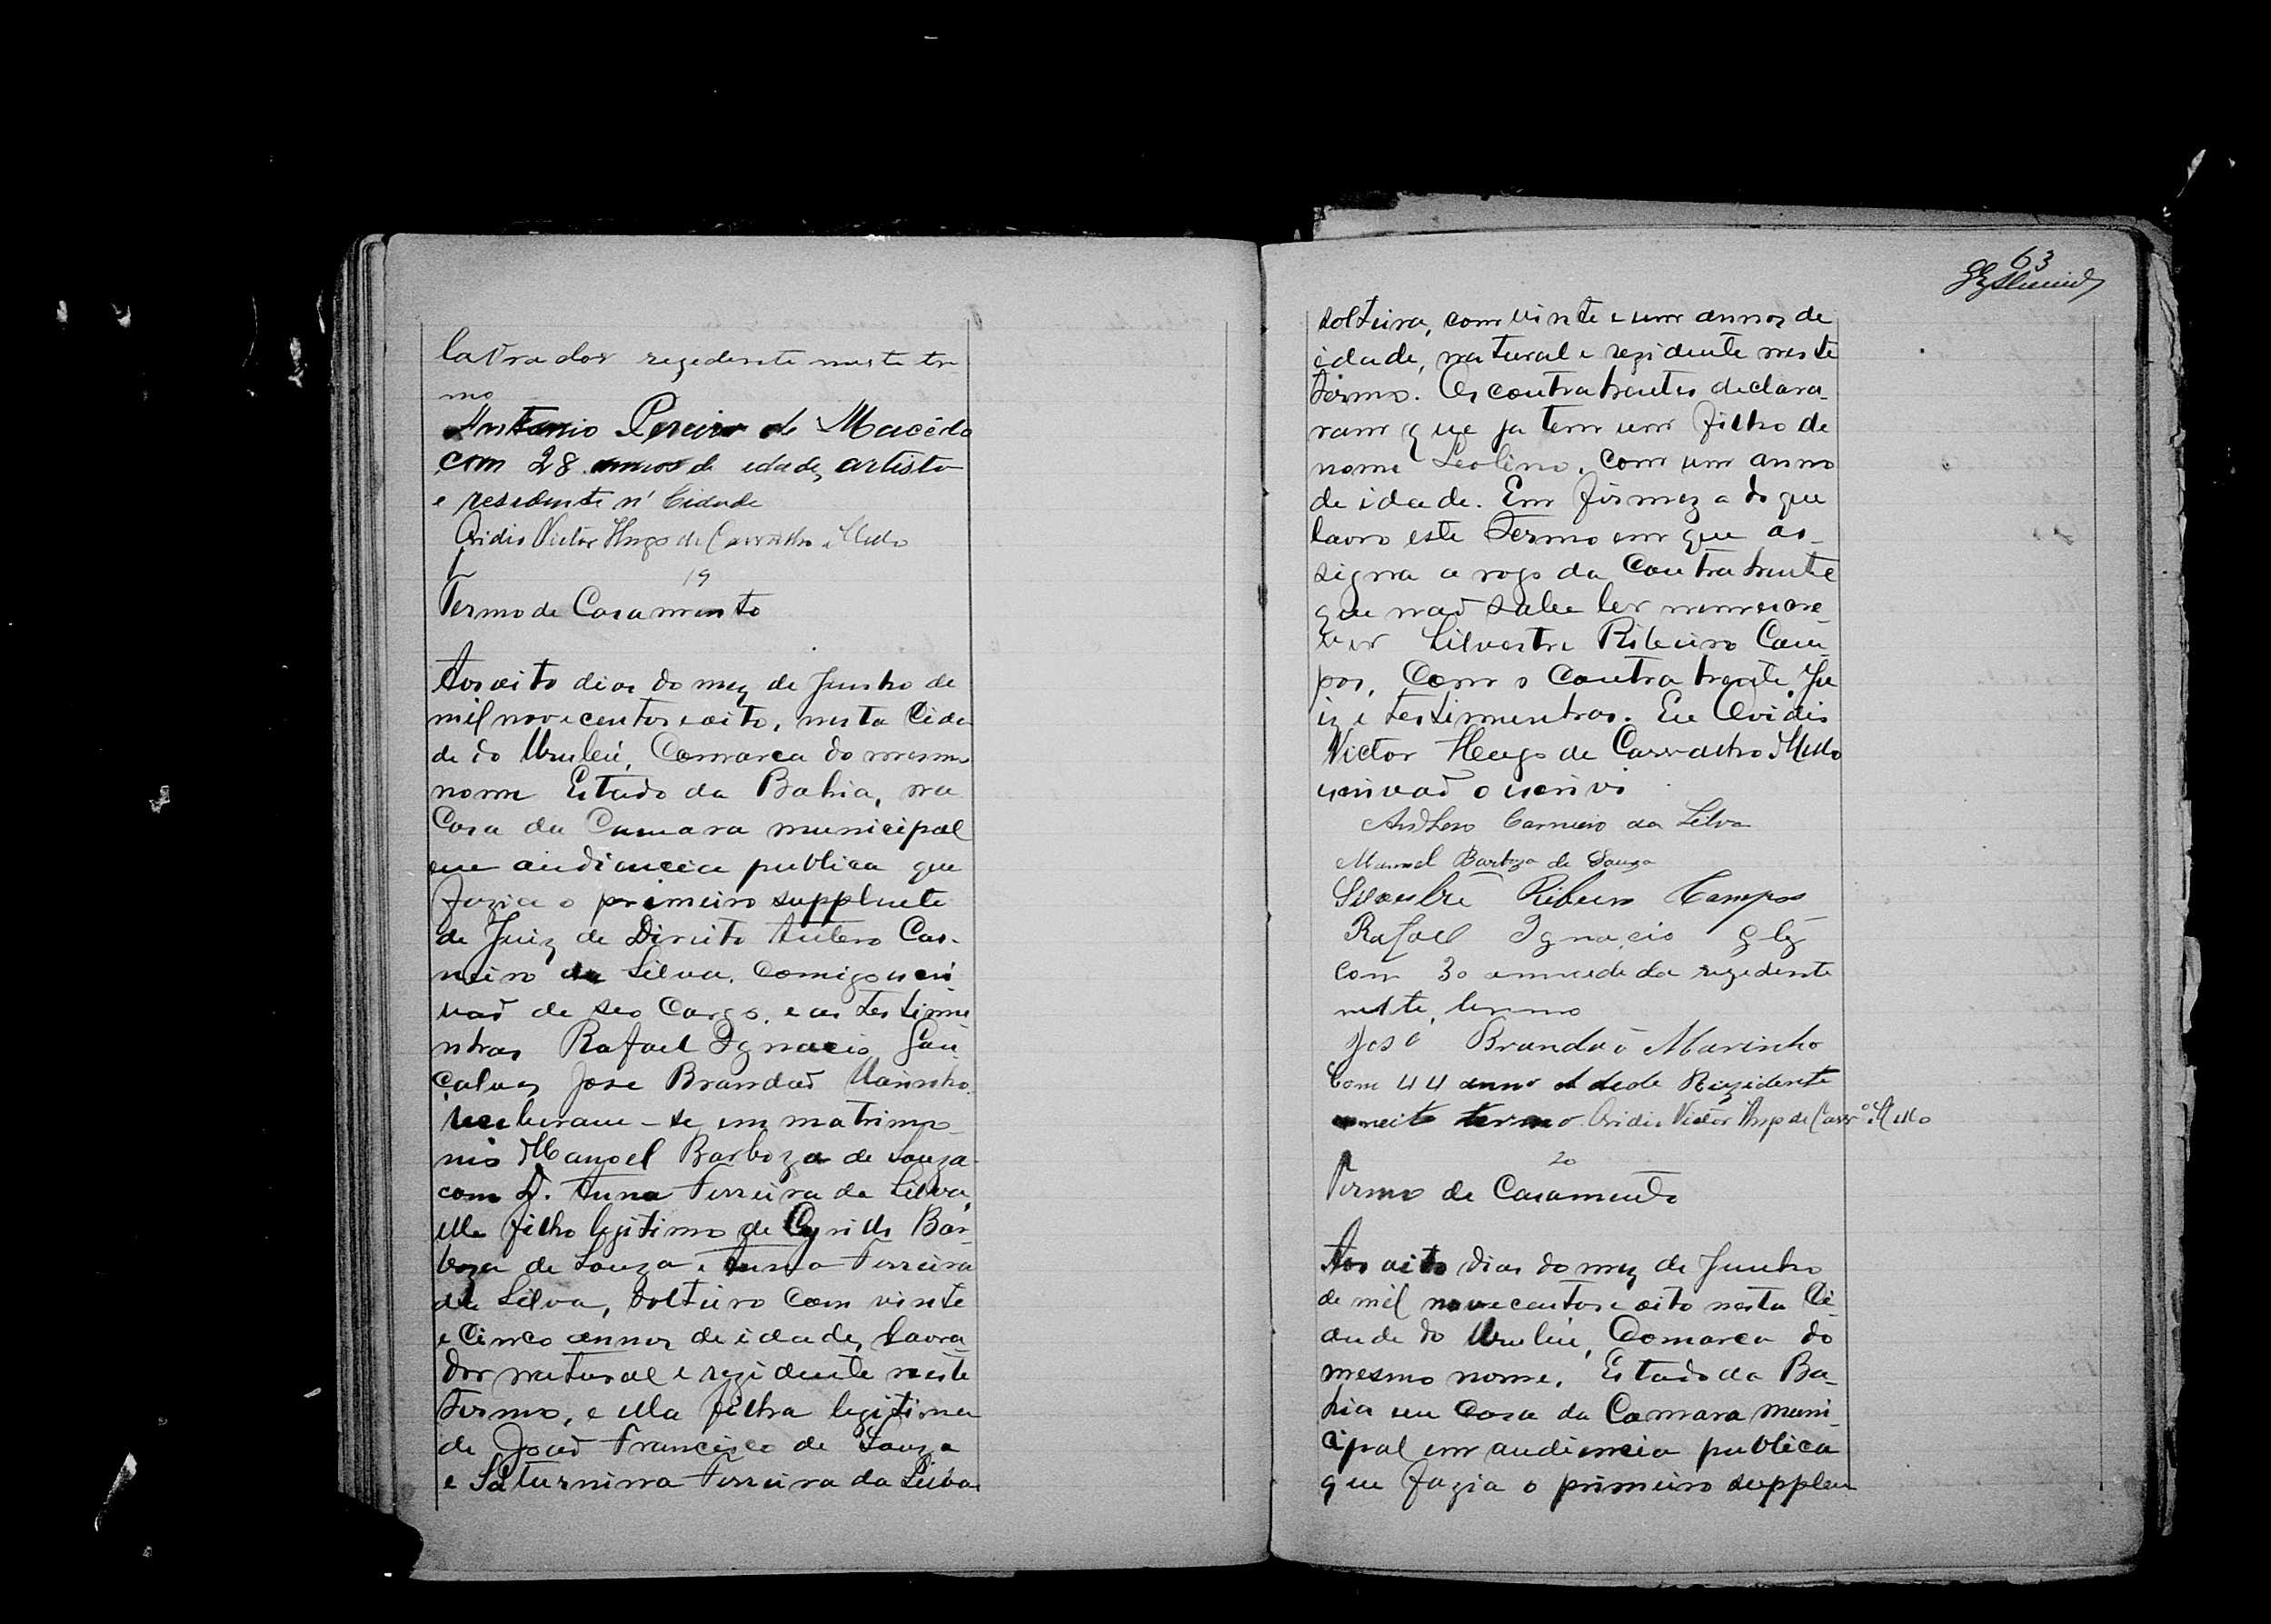 lavrador rezedente neste ter
mo
Antonio Pereira de Macêdo
com 28 annos de edade, artista
e residente n' Cidade
Ovidio Victor Hugo de Carvalho e Mello
19
Termo de Casamento
Aos oito dias do mez de Junho de
mil novecentos e oito, nesta Cida
de do Urubú, Comarca do mesmo
nome Estado da Bahia, na
Casa da Camara municipal
em audiencia publica que
fazia o primeiro supplente
de Juiz de Direito Antero Car-
neiro da Silva, Comigo escri
vaõ de seo Cargo, e as testimu
nhas Rafael Ignacio Gon
çalves, Jose Brandaõ Marinho.
receberam-se em matrimo
nio Manoel Barboza de Souza
com D. Anna Ferreira da Silva,
elle filho legitimo de Cyrillo Bar-
boza de Souza e Anna Ferreira
da Silva, Solteiro Com vinte
e Cinco annos de idade, lavra
dor natural e rezidente neste
termo, e ella filha legitima
de Joaõ Francisco de Souza
e Saturnina Ferreira da Silva
63
solteira, com vinte e um annos de
idade, natural e rezidente neste
termo. Os contrahentes declara-
ram que ja tem um filho de
nome Leolino, com um anno
de idade. Em firmeza do que
lavro este Termo em que as-
signa a rogo da Contrahente
que naõ sabe ler nem escre-
ver Silvestre Ribeiro Cam-
pos, Com o Contrahente, Ju
iz e testimunhas. Eu Ovidio
Victor Hugo de Carvalho Mello
escrivaõ o escrivi
Anthero Carneiro da Silva
Manoel Barboza de Souza
Silvestre Ribeiro Campos
Rafael Ignacio Glz
com 30 annos de da rezedente
neste, termo
José Brandaõ Marinho
Com 44 anno d dade Rezidente
neste termo. Ovidio Victor Hugo de Carvº e Mello
20
Termo de Casamento
Aos oito dias do mez de Junho
de mil novecentos e oito nesta Ci-
dade do Urubú, Comarca do
mesmo nome, Estado da Ba-
hia em Casa da Camara muni-
cipal em audiencia publica
que fazia o primeiro supplen